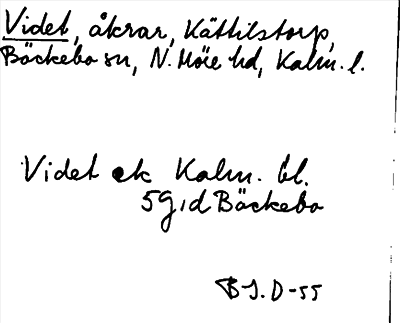 Videt, åkrar, Kättilstorp,
Bäckebo sn, N. Möre hd, Kalm. l.
Videt ek Kalm. bl.
5 G, d Bäckebo
B J. D-55